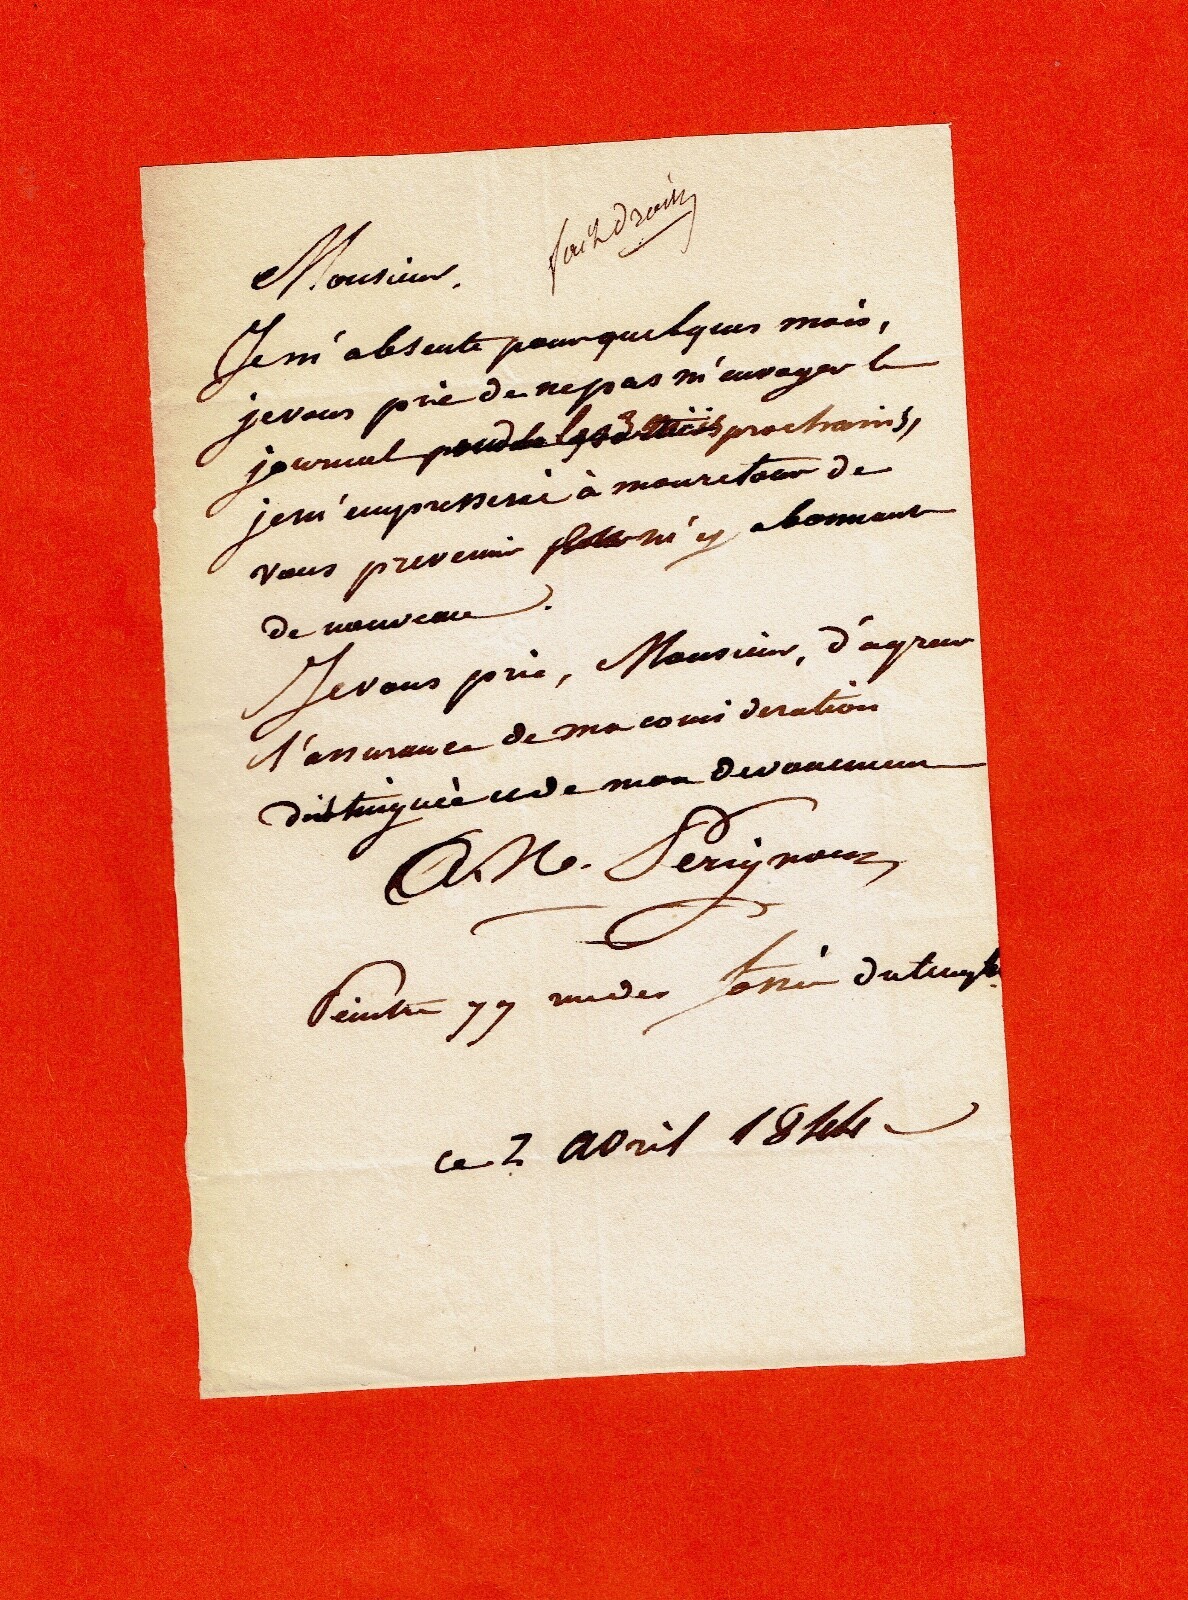 fait droit
Monsieur,
Je m'absente pour quelques mois,
je vous prie de ne pas m'envoyer le
journal les 3 mois prochains,
je m'empresserai à mon retour de
vous prevenir m'y abonnant
de nouveau.
Je vous prie, Monsieur, d'agreer
l'assurance de ma consideration
distinguée et de mon devouement
A. N. Perignon
Peintre 77 rue des fossés du temple
ce 2 avril 1844